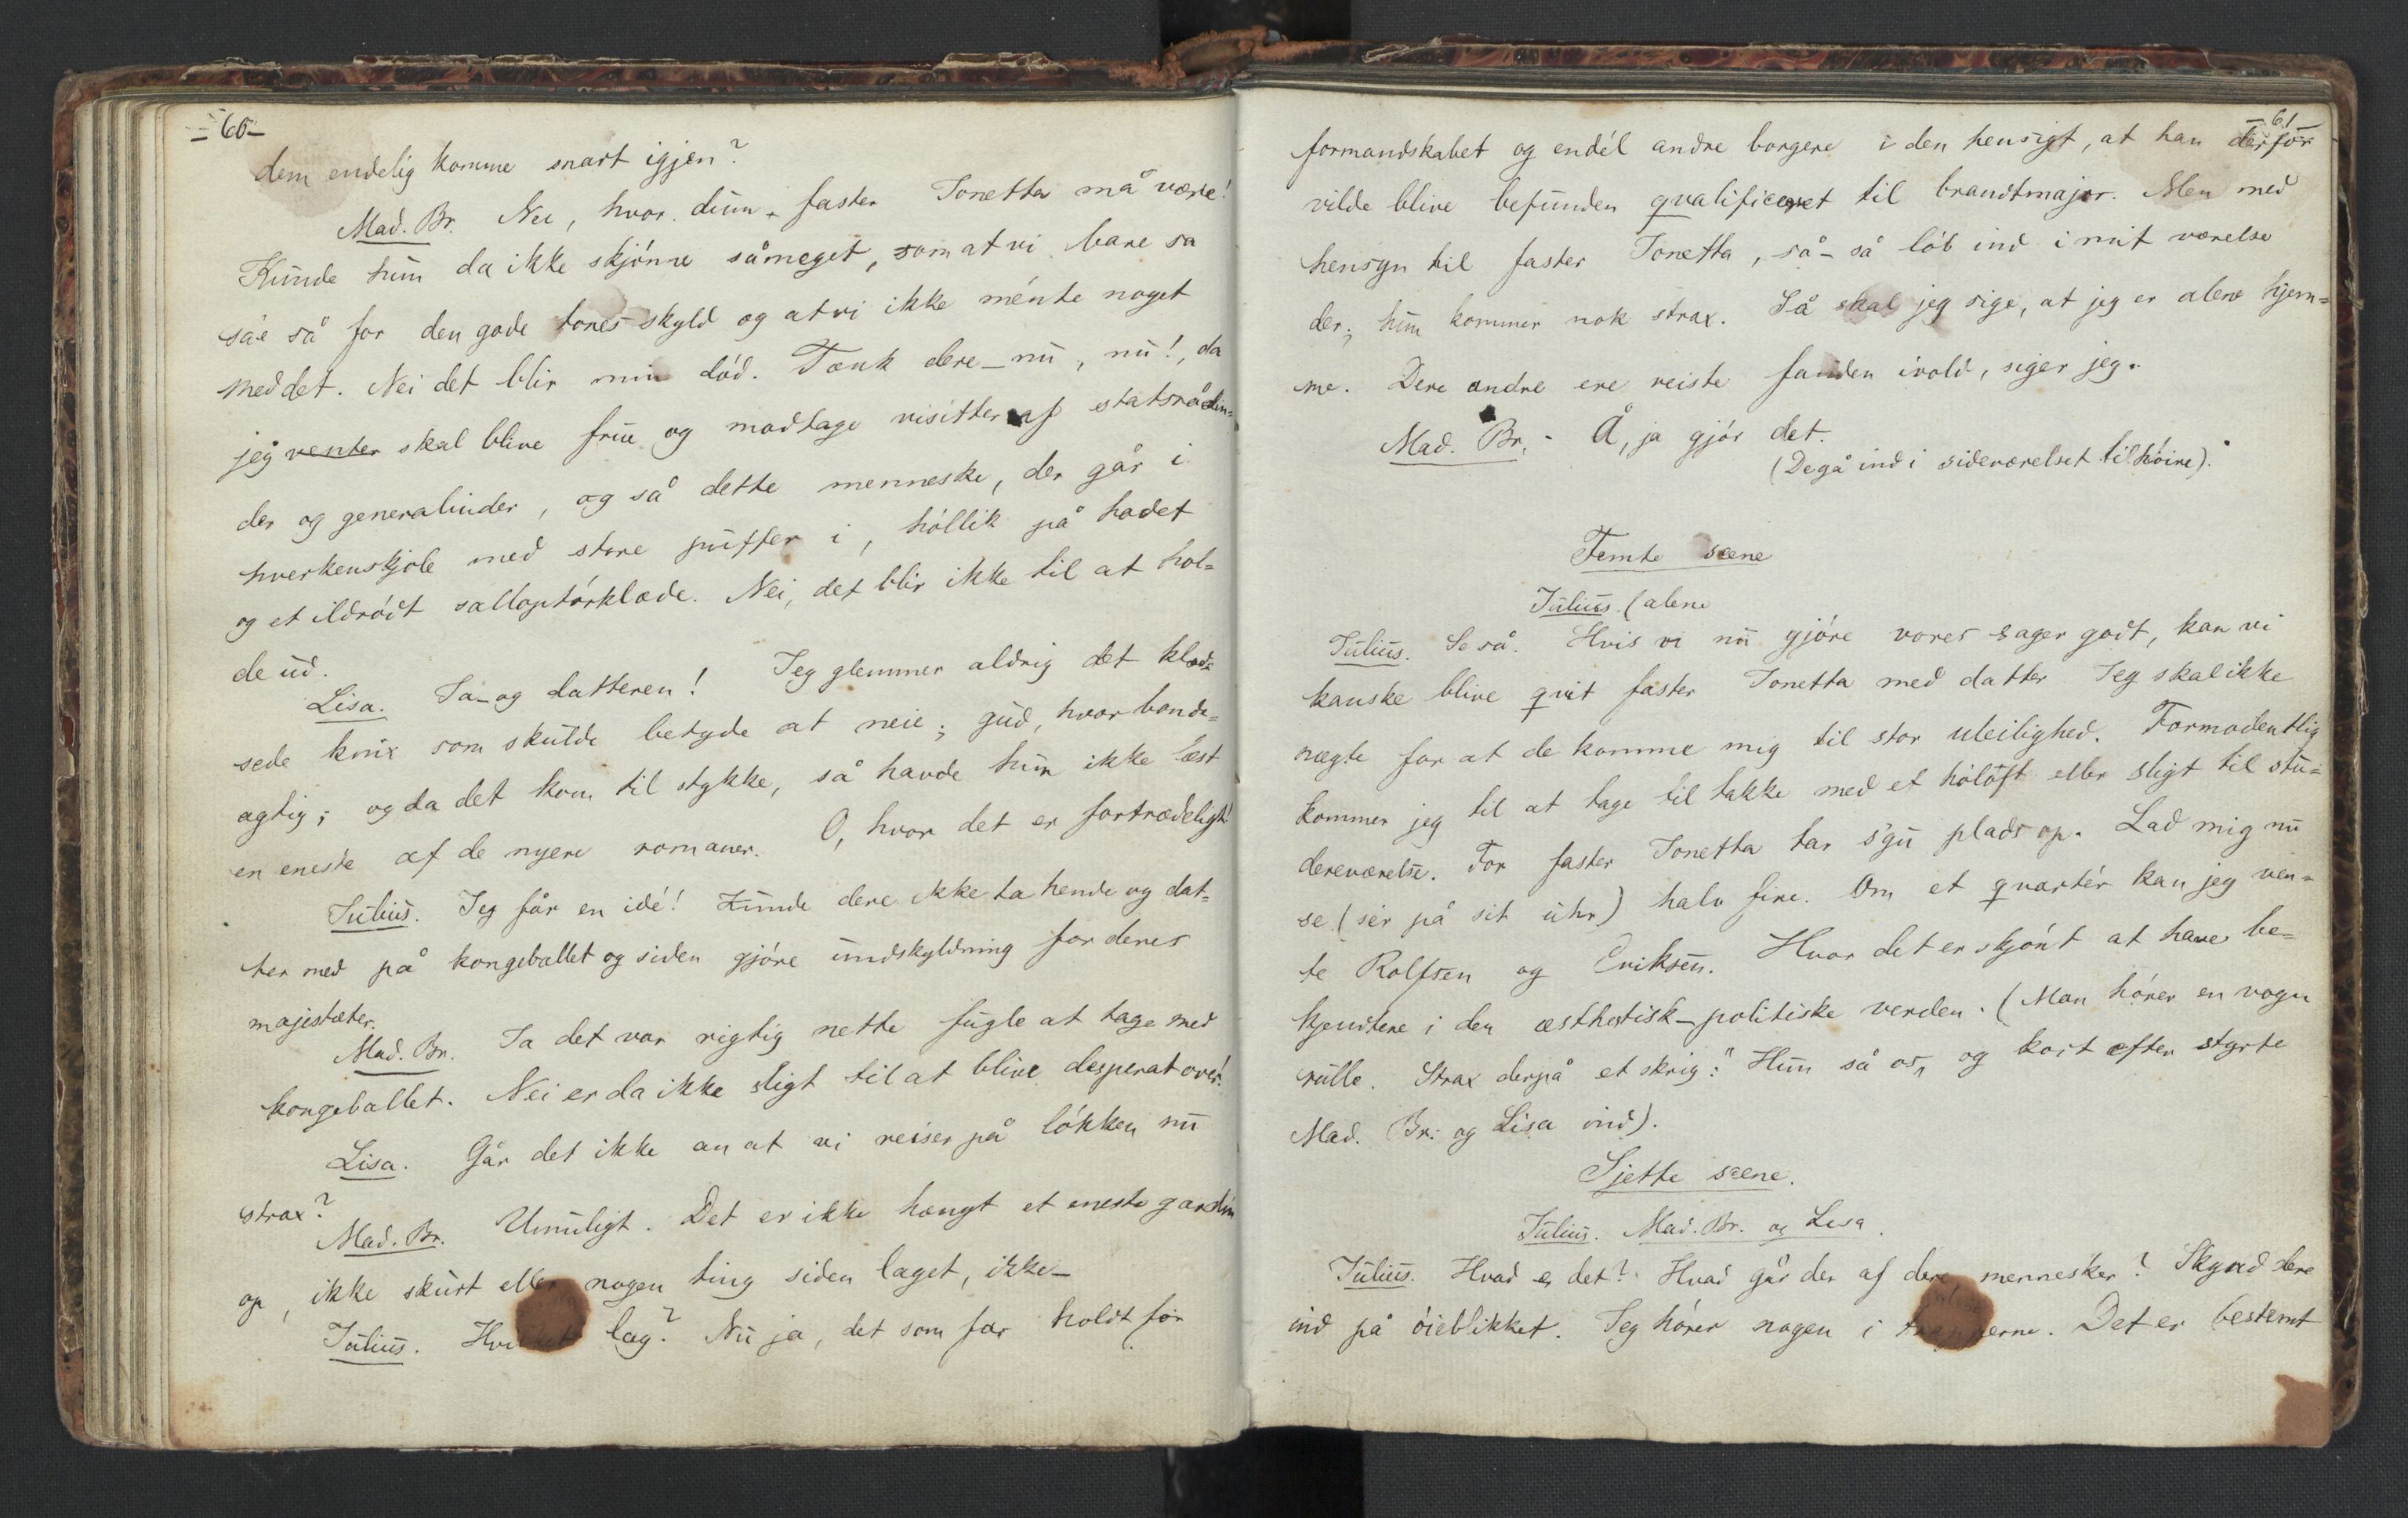 - 60 -
dem endelig komme snart igjen?
Mad. Br. Nei, hvor dum faster Tonetta må være!
Kunde hun da ikke skjónne såmeget, som at vi bare sa
sáe så for den gode tones skyld og at vi ikke ménte noget
med det. Nei det blir min dód. Tænk dere – nu, nu!, da
jeg venter skal blive frue og modtage visitter af statsrådin=
der og generalinder, og så dette menneske, der går i
hverkenskjole med store puffer i, hóllik på hodet
og et ildródt salloptórklæde. Nei, det blir ikke til at hol=
de ud.
Lisa. Ja – og datteren! Jeg glemmer aldrig det klod=
sede knix som skulde betyde at neie; gud, hvor bonde=
agtig; og da det kom til stykke, så havde hun ikke læst
en eneste af de nyere romaner. O, hvor det er fortrædeligt!
Julius. Jeg får en idé! Kunde dere ikke ta hende og dat=
ter med på kongeballet og siden gjóre undskyldning for deres
majestæter.
Mad. Br. Ja det var rigtig nette fugle at tage med
kongeballet. Nei er da ikke sligt til at blive desperat over!
Lisa. Går det ikke an at vi reiser på lókken nu
strax?
Mad. Br. Umuligt. Det er ikke hængt et eneste gardin
op, ikke skurt eller nogen ting siden laget, ikke –
Julius. lag? Nu ja, det som far holdt for
- 61 -
formandskabet og endél andre borgere i den hensigt, at han derfor
vilde blive befunden qvalificeret til brandtmajor. Men med
hensyn til faster Tonetta, så – så lób ind i mit værelse
der; hun kommer nok strax. Så skal jeg sige, at jeg er alene hjem=
me. Dere andre ere reiste fanden ivold, siger jeg.
Mad. Br. Å, ja gjór det.
(De gå ind i sideværelset til hóire).
Femte scene
Julius. (alene
Julius. Se så. Hvis vi nu gjóre vores sager godt, kan vi
kanske blive qvit faster Tonetta med datter Jeg skal ikke
nægte for at de komme mig til stor uleilighed. Formodentlig
kommer jeg til at tage til takke med et hóloft eller sligt til stu=
dereværelse. For faster Tonetta tar s'gu plads op. Lad mig nu
se (sér på sit uhr) halv fire. Om et qvartér kan jeg ven=
te Rolfsen og Eriksen. Hvor det er skjónt at have be=
kjendtere i den æsthetisk-politiske verden. (Man hórer en vogn
rulle. Strax derpå et skrig: "Hun så os„ og kort efter styrte
Mad. Br: og Lisa ind).
Sjette scene.
Julius. Mad. Br. og Lisa.
Julius. Hvad er det? Hvad går der af dere mennesker? Skynd dere
ind på óieblikket. Jeg hórer nogen i trapperne. Det er bestemt